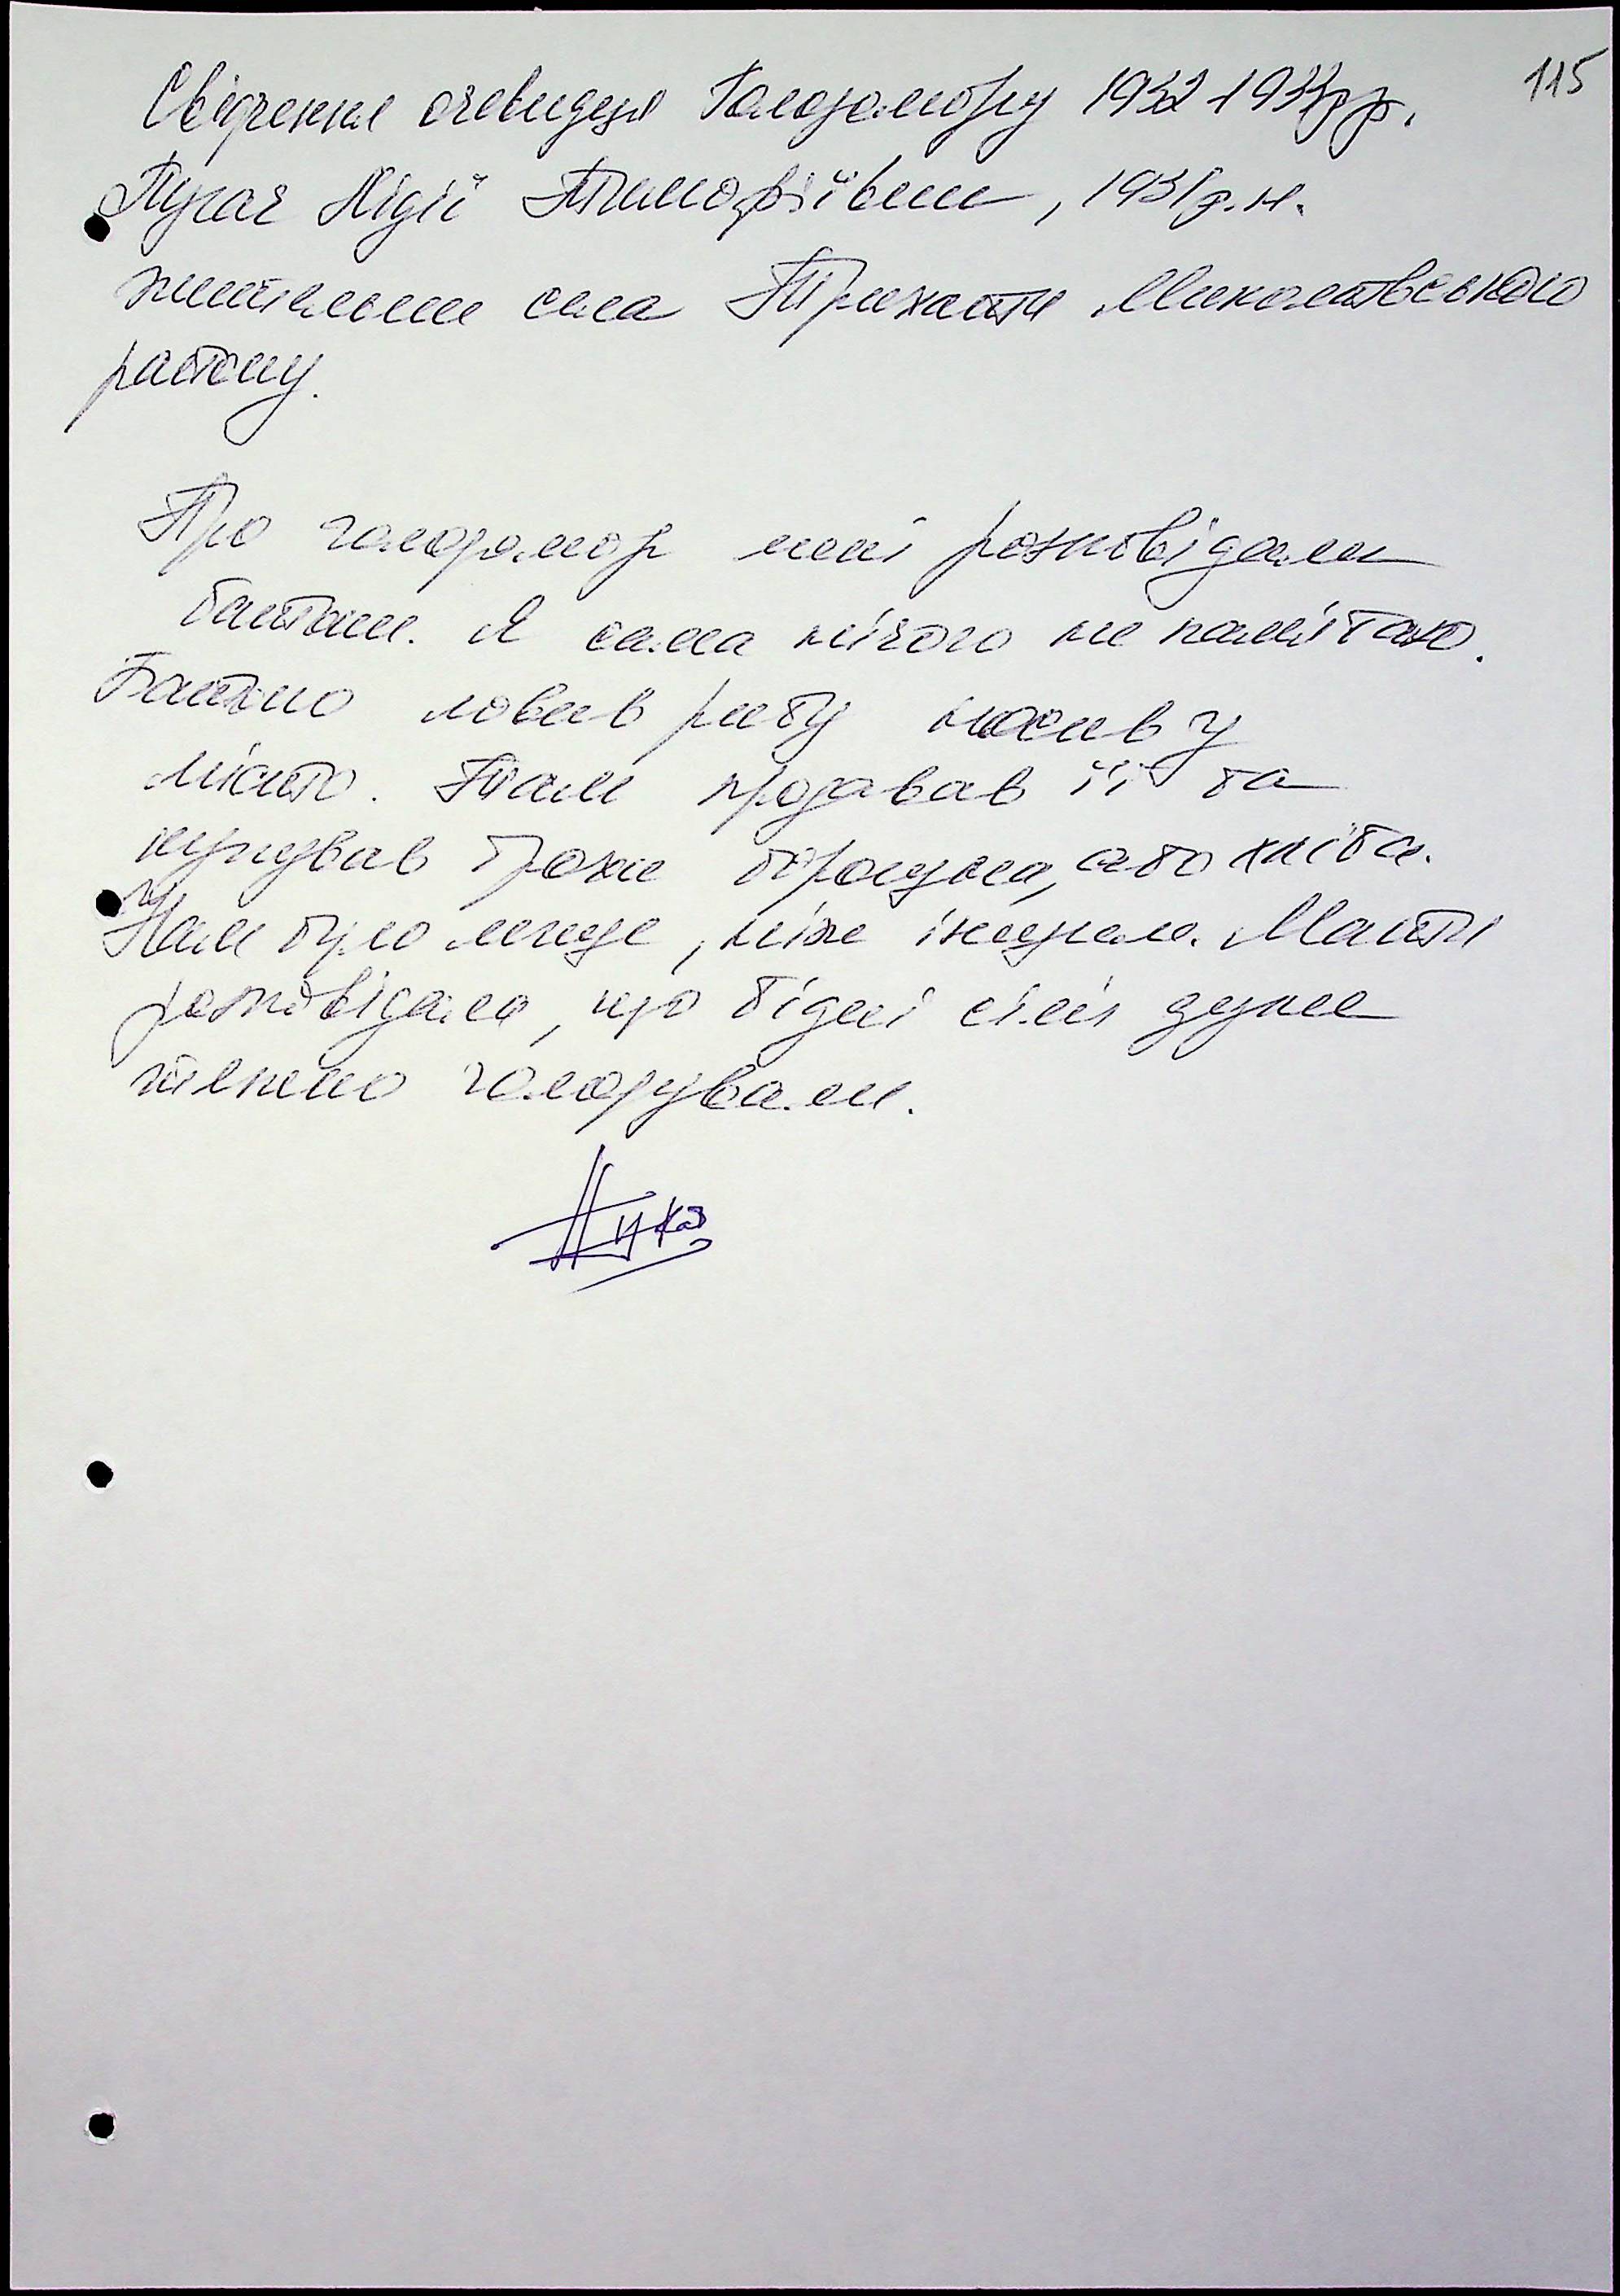 115
Свідчення очевидця Голодомору 1932-1933рр.
Пугач Лідії Тимофіївни, 1931р.н.
жительки села Трихати Миколаївського
району.
Про голодомор мені розповідали
батьки. Я сама нічого не пам'ятаю.
Батько ловив рибу носив у
місто. Там продавав її та
купував трохи борошна, або хліба.
Нам було легше, ніж іншим. Мати
розповідала, що бідні сім'ї дуже
тяжко голодували.